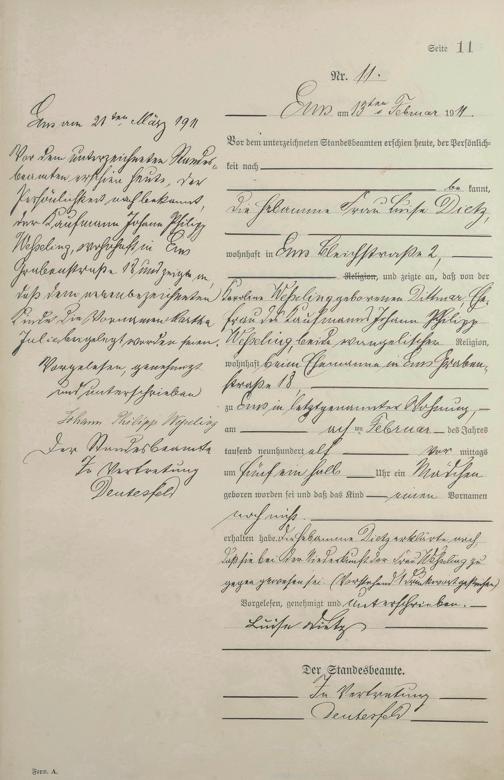 Seite 11
Nr. 11.
Ems am 13ten Februar 1911
Vor dem unterzeichneten Standesbeamten erschien heute, der Persönlich-
keit nach
be kannt,
die Hebamme Frau Luise Dietz,
wohnhaft in Ems Bleichstraße 2,
Religion, und zeigte an, daß von der
Karoline Weßeling geborenen Dittmar, Ehe-
frau des Kaufmanns Johann Philipp
Weßeling, beide evangelischer Religion,
wohnhaft beim Ehemanne in Ems Graben-
straße 18,
zu Ems in letztgenannter Wohnung
am acht ten Februar des Jahres
tausend neunhundert elf Vor mittags
um fünf ein halb Uhr ein Mädchen
geboren worden sei und daß das Kind einen Vornamen
noch nicht
erhalten habe. Die Hebamme Dietz erklärte noch
daß sie bei der Niederkunft der Frau Weßeling zu
gegen gewesen sei. (Vorstehend 1 Druckwort gestrichen)
Vorgelesen, genehmigt und unterschrieben.
Luise Dietz
Der Standesbeamte.
In Vertretung
Deutesfeld
Ems am 21ten März 1911
Vor dem unterzeichneten Standes-
beamten erschien heute, der
Persönlichkeit nach bekannt,
der Kaufmann Johann Philipp
Weßeling, wohnhaft in Ems
Grabenstraße 18 und zeigte an,
daß dem nebenbezeichneten
Kinde die Vornamen Käthe
beigelegt worden seien.
Vorgelesen, genehmigt
und unterschrieben
Johann Philipp Weßeling
Der Standesbeamte
In Vertretung
Deutesfeld
Form. A.